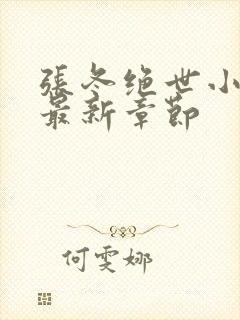 張冬绝世小
最新章節
何雯娜